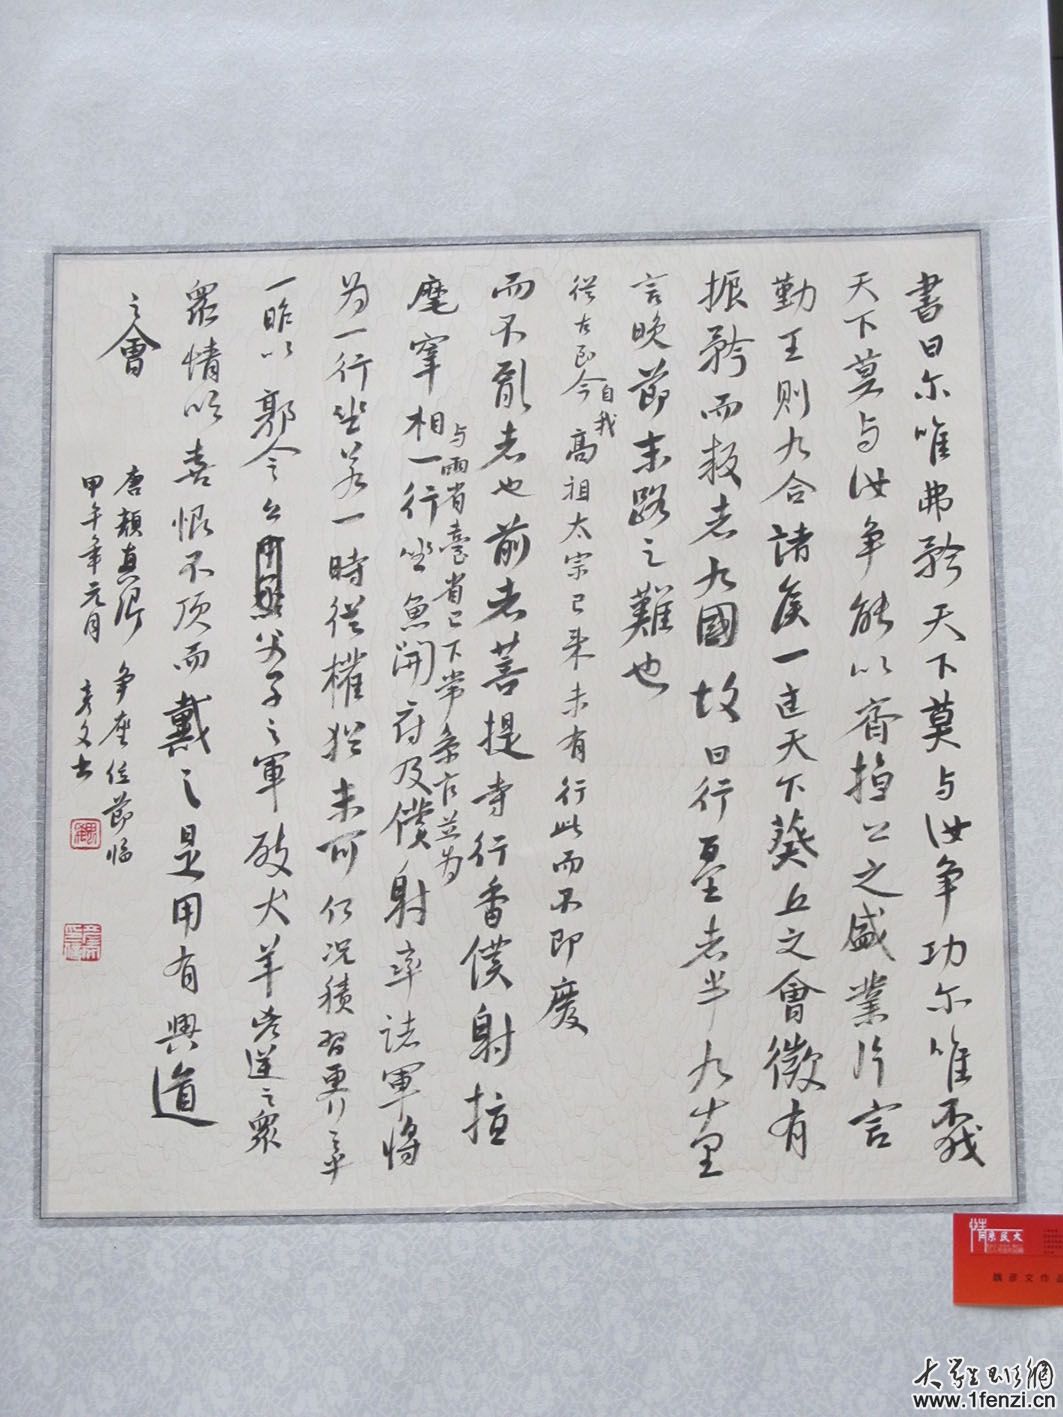 書曰尔唯弗矜天下莫与汝争功尔唯不伐
天下莫与汝争能以齊桓公之盛業片言
勤王則九合諸侯一匡天下葵丘之會微有
振矜而叛者九國故曰行百里者半九十里
言晚節末路之難也
從古至今自我高祖太宗已来未有行此而不即度
而不亂者也前者菩提寺行香僕射指
麾宰相与両省臺省已下常条官並为
一行坐魚開府及僕射率諸軍將
为一行坐若一時從權猶未可何况積習更行之乎
一昨以郭令公父子之軍破犬羊逆之眾
眾情欣喜恨不頂而戴之是用有興道
之會
唐顏真卿争座位節临
甲午年元月 彦文书
大民族情
魏彦文作品
大学生书法网
www.1fenzi.cn